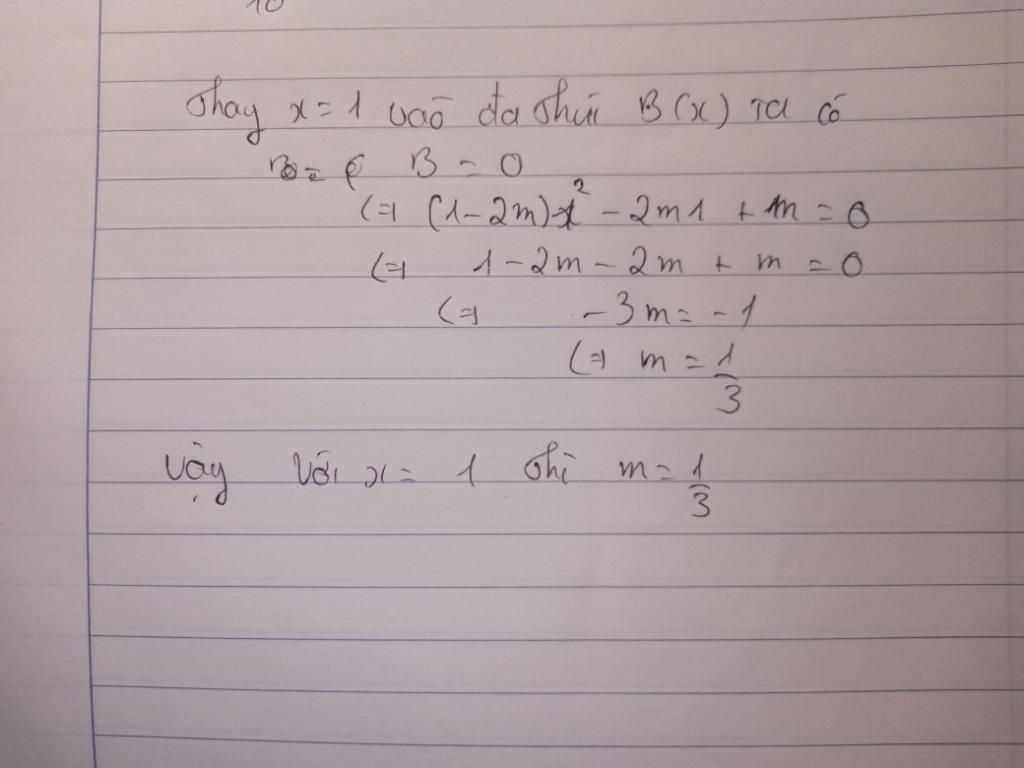 10
Thay x = 1 vào đa thức B(x) ta có
B = 0
(=) (1 - 2m) 1² - 2m1 + 1m = 0
(=) 1 - 2m - 2m + m = 0
(=) - 3m = - 1
(=) m = 1/3
Vậy với x = 1 thì m = 1/3